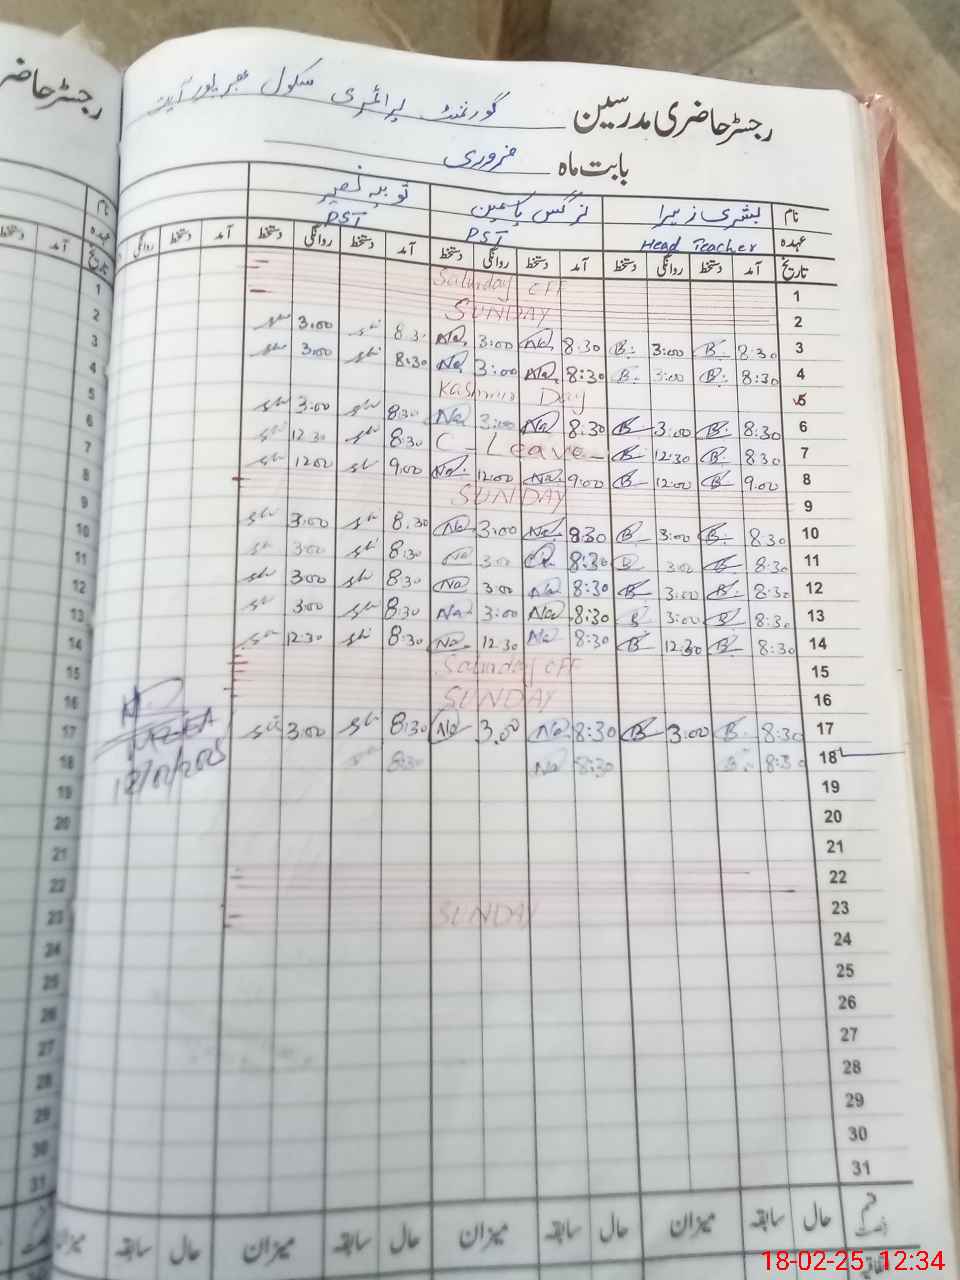 رجسٹر حاضری مدرسین گورنمنٹ پرائمری سکول
بابت ماہ فروری
نام بشریٰ زہرا نرگس یاسمین ثوبیہ نصیر
عہدہ Head Teacher PST PST
تاریخ آمد دستخط روانگی دستخط آمد دستخط روانگی دستخط آمد دستخط روانگی دستخط آمد دستخط روانگی
1 Saturday OFF
2 SUNDAY
3 8:30 B. 3:00 B. 8:30 Na. 3:00 Na. 8:30 3:00
4 8:30 B. 3:00 B. 8:30 Na. 3:00 Na. 8:30 3:00
5 Kashmir Day
6 8:30 B. 3:00 B. 8:30 Na 3:00 Na 8:30 3:00
7 8:30 B. 12:30 B. C - Leave - 8:30 12:30
8 9:00 B. 12:00 B. 9:00 Na. 12:00 Na. 9:00 12:00
9 SUNDAY
10 8:30 B. 3:00 B. 8:30 Na. 3:00 Na 8:30 3:00
11 8:30 B. 3:00 B. 8:30 3:00 Na 8:30 3:00
12 8:30 B. 3:00 B. 8:30 Na 3:00 Na 8:30 3:00
13 8:30 B. 3:00 B 8:30 Na 3:00 Na 8:30 3:00
14 8:30 B. 12:30 B. 8:30 Na 12:30 Na. 8:30 12:30
15 Saturday OFF
16 SUNDAY
17 8:30 B. 3:00 B. 8:30 Na 3:00 Na 8:30 3:00
18 8:30 B. 8:30 Na 8:30
19
20
21
22
23 SUNDAY
24
25
26
27
28
29
30
31
حال سابقہ میزان حال سابقہ میزان حال سابقہ میزان حال سابقہ میزان
رجسٹر حاضر
نام
عہدہ
تاریخ
1
2
3
4
5
6
7
8
9
10
11
12
13
14
15
16
17
18
19
20
21
22
23
24
25
26
27
28
29
30
31
18-02-25 12:34